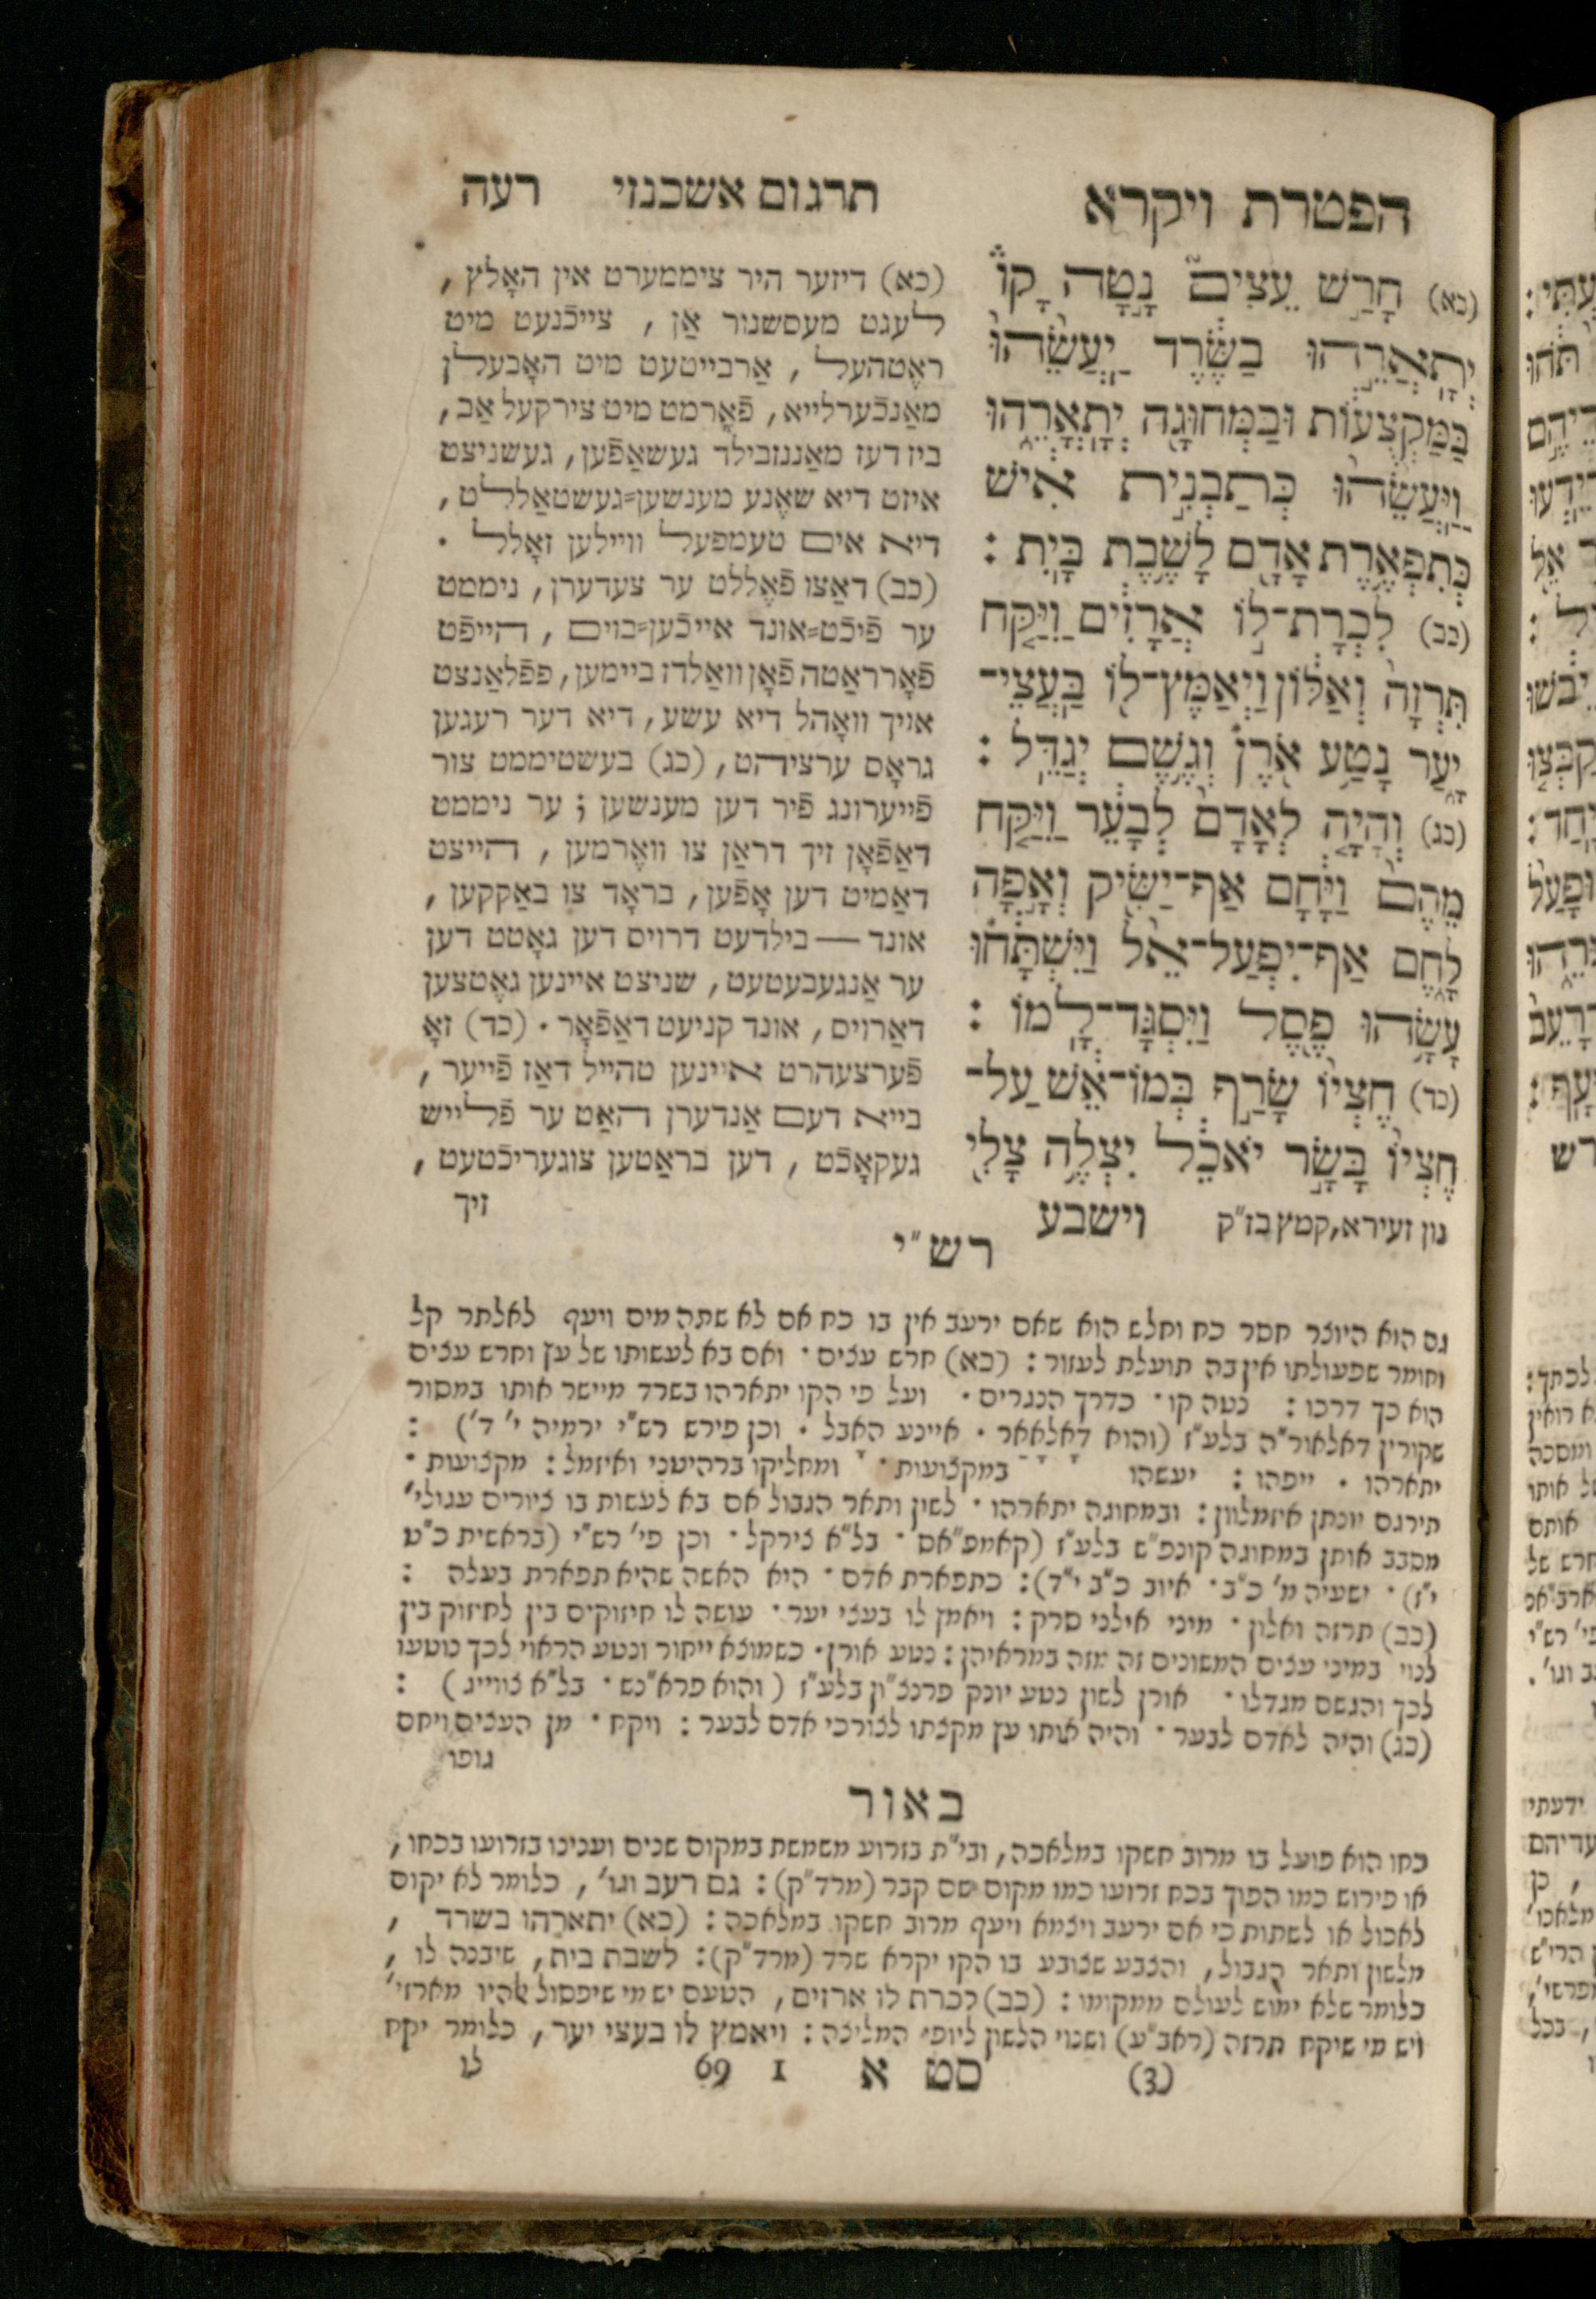 הפטרת ויקרא
תרגום אשכנזי רעה
(כא) חָרַשׁ עֵצִים נָטָה קָו
יְתָאֲרֵהוּ בַשֶּׂרֶד יַעֲשֵׂהוּ
בַּמַּקְצֻעוֹת וּבַמְּחוּגָה יְתָאֳרֵהוּ
וַיַּעֲשֵׂהוּ כְּתַבְנִית אִישׁ
כְּתִפְאֶרֶת אָדָם לָשֶׁבֶת בָּיִת :
(כב) לִכְרָת־לוֹ אֲרָזִים וַיִּקַּח
תִּרְזָה וְאַלּוֹן וַיְאַמֶּץ־לוֹ בַּעֲצֵי־
יָעַר נָטַע אֹרֶן וְגֶשֶׁם יְגַדֵּל :
(כג) וְהָיָה לְאָדָם לְבָעֵר וַיִּקַּח
מֵהֶם וַיָּחָם אַף־יַשִּׂיק וְאָפָה
לָחֶם אַף־יִפְעַל־אֵל וַיִּשְׁתָּחוּ
עָשָׂהוּ פֶסֶל וַיִּסְגָּד־לָמוֹ :
(כד) חֶצְיוֹ שָׂרַף בְּמוֹ־אֵשׁ עַל־
חֶצְיוֹ בָּשָׂר יֹאכֵל יִצְלֶה צָלִי
נון זעירא, קמץ בז״ק וישבע
(כא) דיזער היר ציממערט אין האָלץ ,
לעגט מעסשנור אַן , צייכֿנעט מיט
ראָטהעל , אַרבייטעט מיט האָבעלן
מאַנכֿערלייא, פֿאָרמט מיט צירקעל אַב ,
ביז דעז מאַננזבילד געשאַפֿען, געשניצט
איזט דיא שאָנע מענשען=געשטאַללט ,
דיא אים טעמפעל וויילען זאָלל .
(כב) דאַצו פֿאֶללט ער צעדערן, נימмט
ער פֿיכֿט=אונד אייכֿען=בוים , הייפֿט
פֿאָרראַטה פֿאָן וואַלדז ביימען, פפֿלאַנצט
אויך וואָהל דיא עשע, דיא דער רעגען
גראָס ערציהט, (כג) בעשטיממט צור
פֿייערונג פֿיר דען מענשען ; ער ניממט
דאַפֿאָן זיך דראַן צו וואֶרמען , הייצט
דאַמיט דען אָפֿען, בראָד צו באַקקען ,
אונד — בילדעט דרויס דען גאָטט דען
ער אַנגעבעטעט, שניצט איינען גאֶטצען
דאַרויס, אונד קניעט דאַפֿאָר . (כד) זאָ
פֿערצעהרט איינען טהייל דאַז פֿייער ,
בייא דעם אַנדערן האַט ער פֿלייש
געקאָכֿט , דען בראַטען צוגעריכֿטעט ,
זיך
רש״י
גם הוא היוצר חסר כח וחלש הוא שאם ירעב אין בו כח אם לא שתה מים ויעף לאלתר קל
וחומר שפעולתו אין בה תועלת לעזור : (כא) חרש עצים · ואם בא לעשותו של עץ וחרש עצים
הוא כך דרכו : נטה קו · כדרך הנגרים · ועל פי הקו יתארהו בשרד מיישר אותו במסור
שקורין דאלאור״ה בלע״ז (והוא דאָלאָאר · איינע האבל · וכן פירש רש״י ירמיה י׳ ד׳) :
יתארהו · ייפהו : יעשהו במקצועות · ומחליקו ברהיטני ואיזמל : מקצועות ·
תירגם יונתן איזמלוון : ובמחוגה יתארהו · לשון ותאר הגבול אם בא לעשות בו ציורים עגולי׳
מסבב אותן במחוגה קונפ״ש בלע״ז (קאמפ״אס · בל״א צירקל · וכן פי׳ רש״י (בראשית כ״ט
י״ז) · ישעיה מ׳ כ״ב · איוב כ״ב י״ד) : כתפארת אדם · היא האשה שהיא תפארת בעלה :
(כב) תרזה ואלון · מיני אילני סרק : ויאמץ לו בעצי יער · עושה לו חיזוקים בין לחיזוק בין
לנוי במיני עצים המשונים זה מזה במראיהן : נטע אורן · כשמוצא ייחור ונטע הראוי לכך נוטעו
לכך והגשם מגדלו · אורן לשון נטע יונק פרנצ״ון בלע״ז ( והוא פרא״נש · בל״א צווייג ) :
(כג) והיה לאדם לבער · והיה אותו עץ מקצתו לצורכי אדם לבער : ויקח · מן העצים ויחם
גופו
באור
כחו הוא פועל בו מרוב חשקו במלאכה, ובי״ת בזרוע משמשת במקום שנים וענינו בזרועו בכחו ,
או פירוש כמו הפוך בכח זרועו כמו מקום שם קבר (מרד״ק) : גם רעב וגו׳ , כלומר לא יקום
לאכול או לשתות כי אם ירעב ויצמא ויעף מרוב חשקו במלאכה : (כא) יתארהו בשרד ,
מלשון ותאר הגבול, והצבע שצובע בו הקו יקרא שרד (מרד״ק) : לשבת בית, שיבנה לו ,
כלומר שלא ימוש לעולם ממקומו : (כב) לכרת לו ארזים, הטעם יש מי שיפסול להיו מארזי׳
ויש מי שיקח תרזה (ראב״ע) ושנוי הלשון ליופי המליצה : ויאמץ לו בעצי יער, כלומר יקח
(3) סט א 1 69 לו